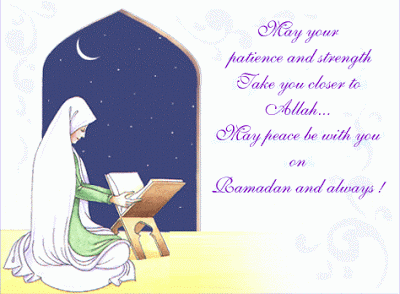 May your
patience and strength
Take you closer to
Allah...
May peace be with you
on
Ramadan and always !